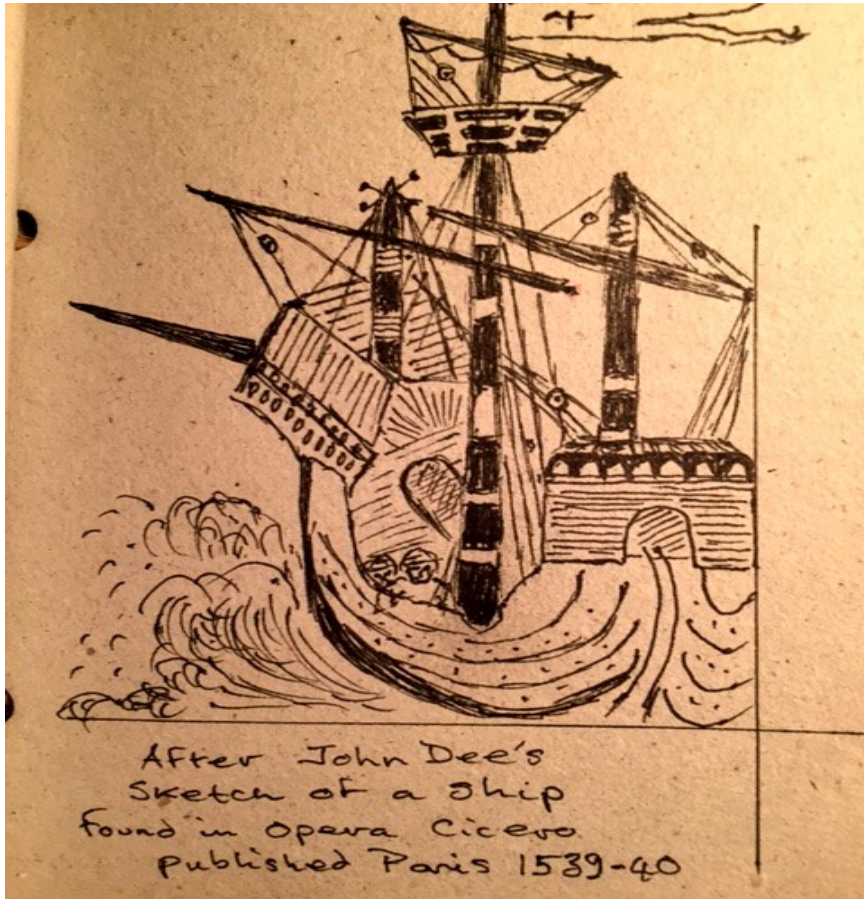 After John Dee's
Sketch of a Ship
found in Opera Cicero
published Paris 1539-40